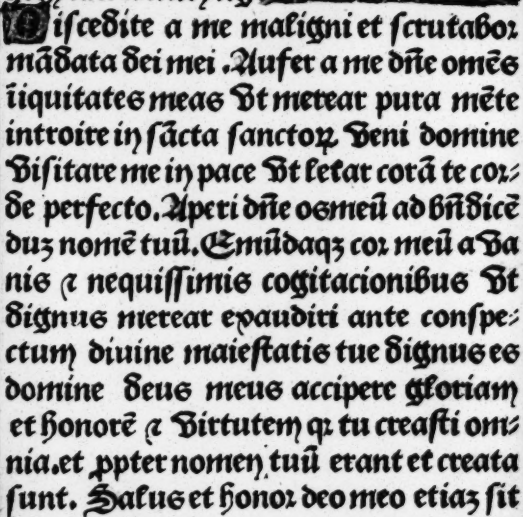 Discedite a me maligni et scrutabor
mādata dei mei .Aufer a me dn̄e omēs
īiquitates meas Vt merear pura mēte
introire in sācta sanctoꝝ Veni domine
Visitare me in pace Vt letar corā te cor⸗
de perfecto. Aperi dn̄e os meū ad bn̄dicē
duꝫ nomē tuū. Emūdaqꝫ cor meū a Va
nis ⁊ nequissimis cogitacionibus Vt
dignus merear exaudiri ante conspe⸗
ctum diuine maiestatis tue dignus es
domine deus meus accipere gloriam
et honorē ⁊ Virtutem qꝛ tu creasti om⸗
nia. et ꝓpter nomen tuū erant et creata
sunt. Salus et honor deo meo etiaꝫ sit